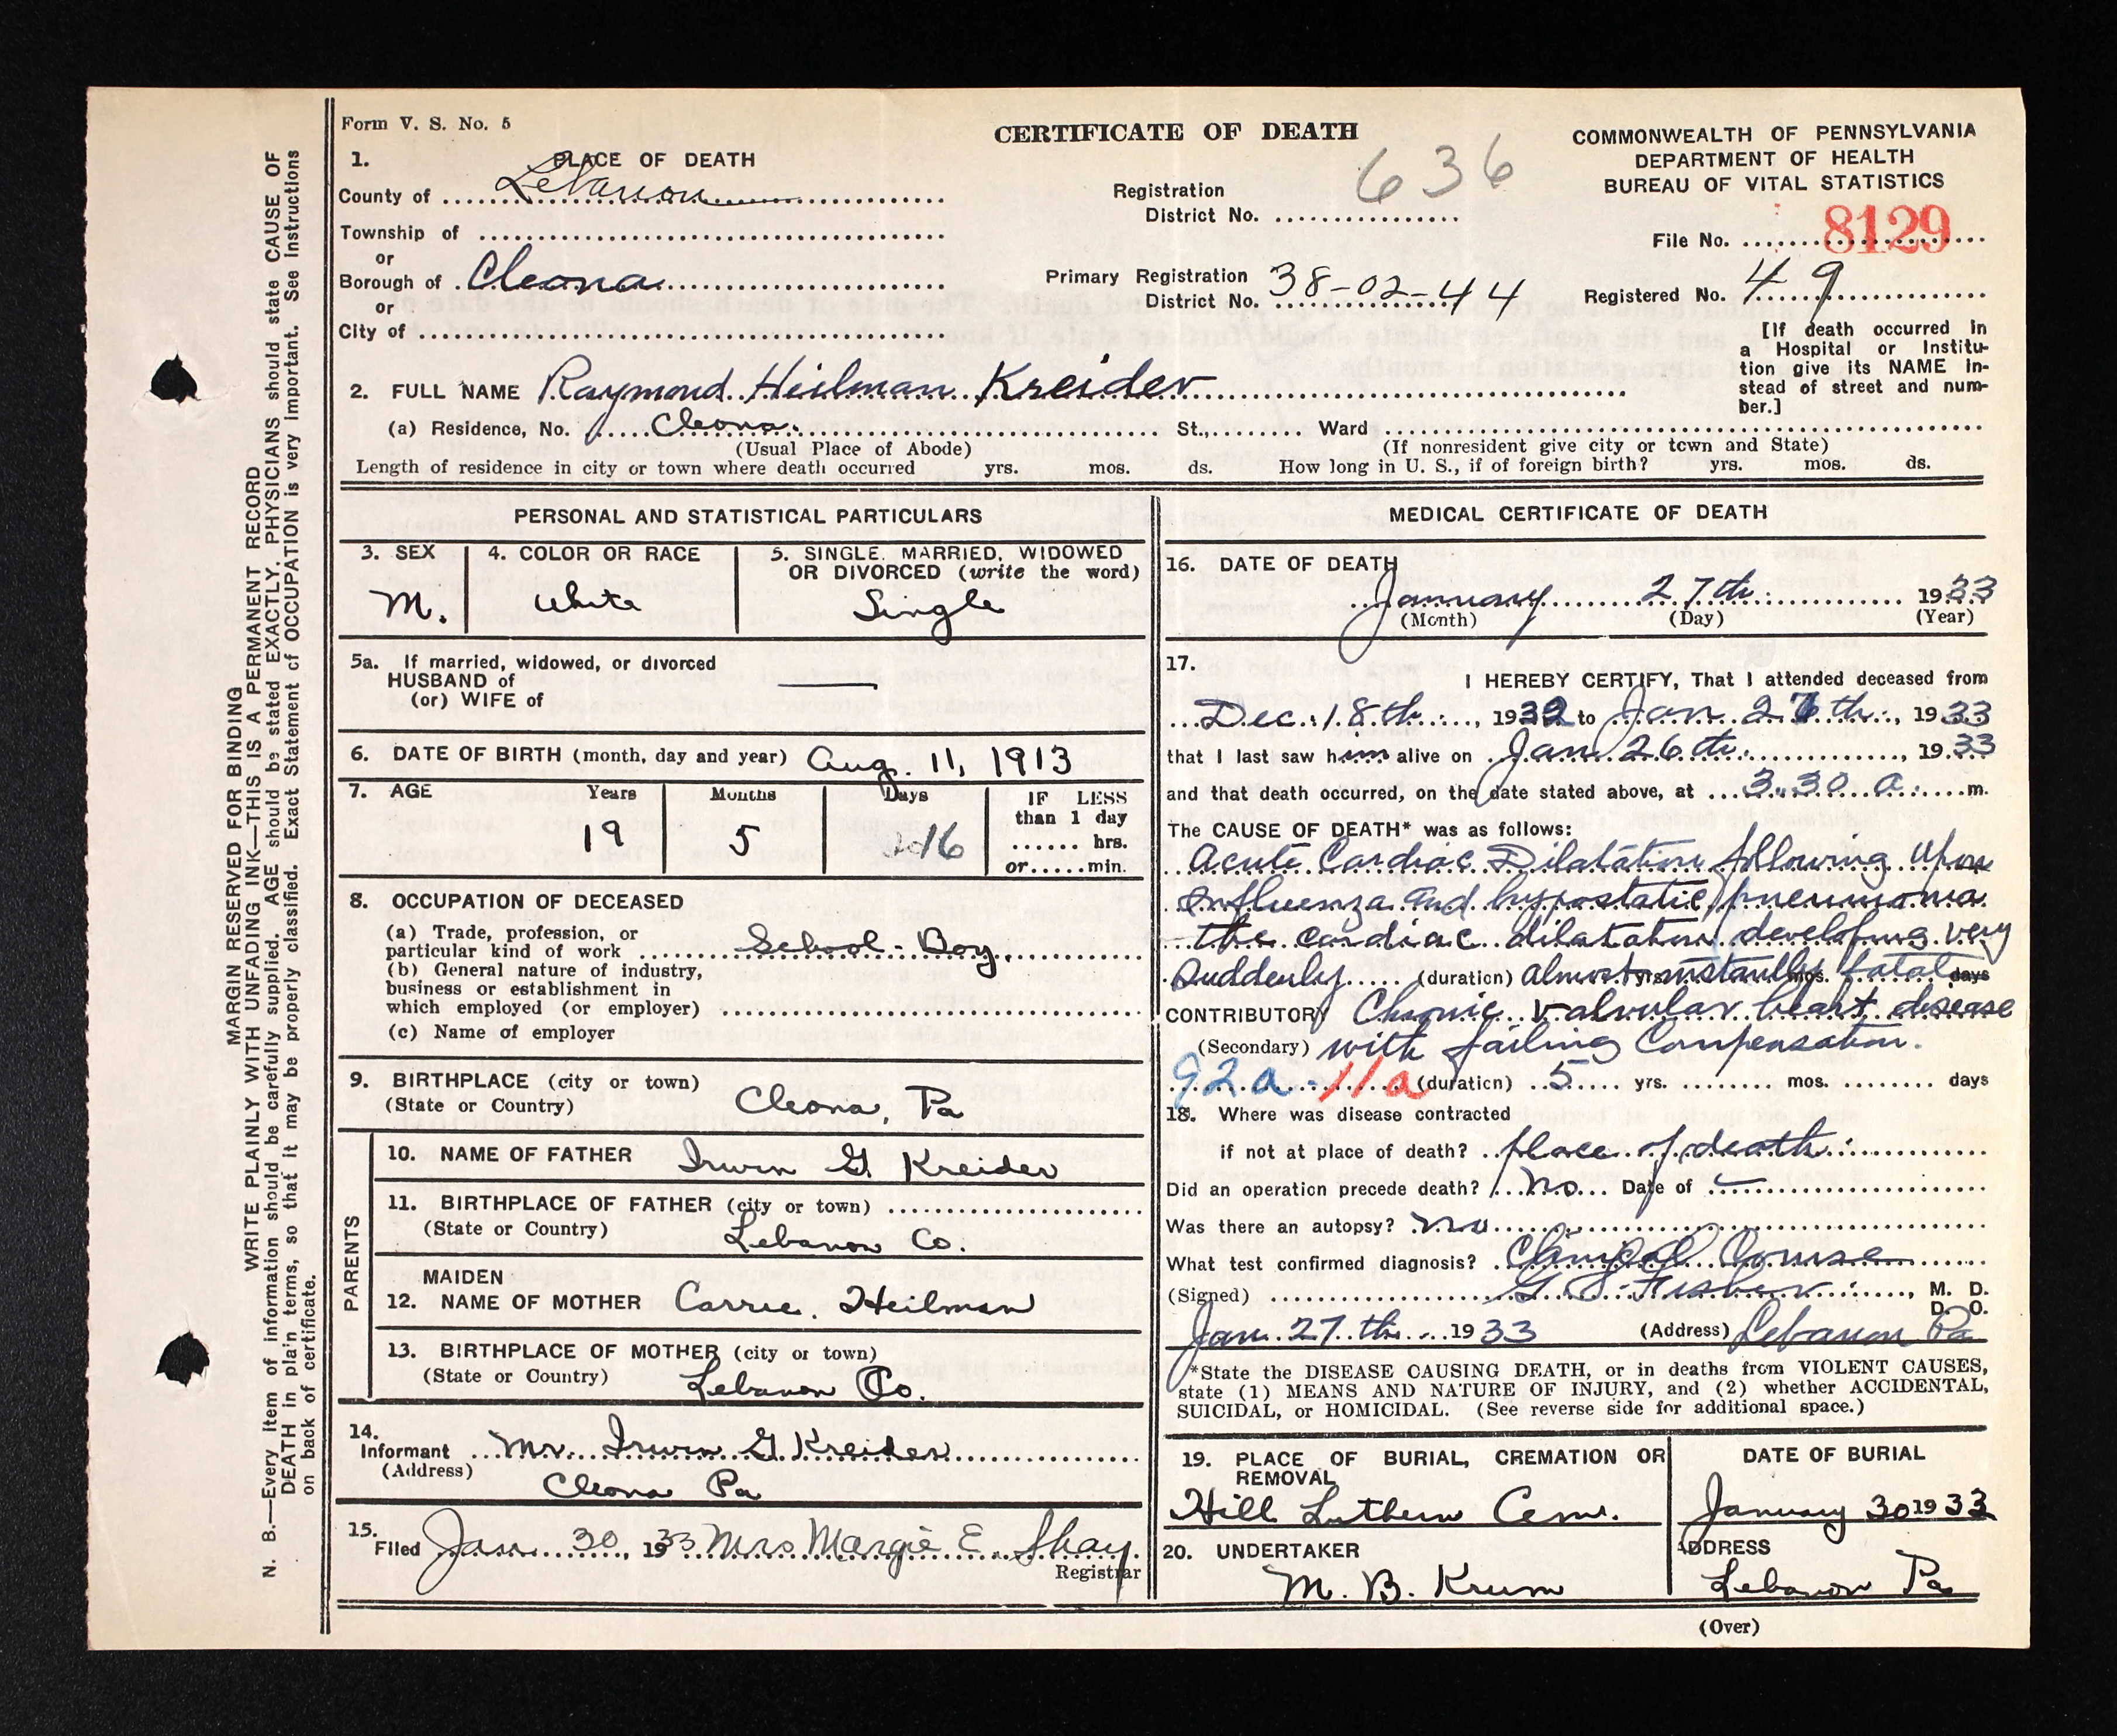 Form V. S. No. 5
CERTIFICATE OF DEATH
COMMONWEALTH OF PENNSYLVANIA
DEPARTMENT OF HEALTH
BUREAU OF VITAL STATISTICS
1. PLACE OF DEATH
County of Lebanon
Township of
or
Borough of Cleona
or
City of
636
Registration
District No.
Primary Registration
District No. 38-02-44
File No. 8129
Registered No. 49
[If death occurred in
a Hospital or Institu-
tion give its NAME in-
stead of street and num-
ber.]
2. FULL NAME Raymond Heilman Kreider
(a) Residence, No. Cleona. St., Ward
(Usual Place of Abode) (If nonresident give city or town and State)
Length of residence in city or town where death occurred yrs. mos. ds. How long in U. S., if of foreign birth? yrs. mos. ds.
PERSONAL AND STATISTICAL PARTICULARS
3. SEX
M.
4. COLOR OR RACE
White
5. SINGLE, MARRIED, WIDOWED
OR DIVORCED (write the word)
Single
5a. If married, widowed, or divorced
HUSBAND of
(or) WIFE of
6. DATE OF BIRTH (month, day and year) Aug. 11, 1913
7. AGE Years Months Days IF LESS
than 1 day
19 5 16
...... hrs.
or.....min.
8. OCCUPATION OF DECEASED
(a) Trade, profession, or
particular kind of work School-Boy
(b) General nature of industry,
business or establishment in
which employed (or employer)
(c) Name of employer
9. BIRTHPLACE (city or town)
(State or Country) Cleona, Pa
PARENTS
10. NAME OF FATHER Irwin G. Kreider
11. BIRTHPLACE OF FATHER (city or town)
(State or Country) Lebanon Co.
MAIDEN
12. NAME OF MOTHER Carrie Heilman
13. BIRTHPLACE OF MOTHER (city or town)
(State or Country) Lebanon Co.
14.
Informant Mr. Irwin G. Kreider
(Address)
Cleona Pa
15.
Filed Jan. 30, 1933 Mrs Margie E. Shay
Registrar
MEDICAL CERTIFICATE OF DEATH
16. DATE OF DEATH
January 27th 1933
(Month) (Day) (Year)
17.
I HEREBY CERTIFY, That I attended deceased from
Dec. 18th, 1932 to Jan 27th, 1933
that I last saw him alive on Jan 26th, 1933
and that death occurred, on the date stated above, at 3.30 a. m.
The CAUSE OF DEATH* was as follows:
Acute Cardiac Dilatation following upon
Influenza and hypostatic pneumonia
the cardiac dilatation developing very
suddenly (duration) almost instantly fatal yrs. mos. days
CONTRIBUTORY Chronic valvular heart disease
(Secondary) with failing Compensation.
92a - 11a (duration) 5 yrs. mos. days
18. Where was disease contracted
if not at place of death? place of death
Did an operation precede death? no Date of —
Was there an autopsy? no
What test confirmed diagnosis? Clinical Course
(Signed) G. S. Fisher, M. D.
D. O.
Jan. 27th 1933 (Address) Lebanon Pa
*State the DISEASE CAUSING DEATH, or in deaths from VIOLENT CAUSES,
state (1) MEANS AND NATURE OF INJURY, and (2) whether ACCIDENTAL,
SUICIDAL, or HOMICIDAL. (See reverse side for additional space.)
19. PLACE OF BURIAL, CREMATION OR
REMOVAL
Hill Luthern Cem.
DATE OF BURIAL
January 30 1933
20. UNDERTAKER
M. B. Krum
ADDRESS
Lebanon Pa
(Over)
MARGIN RESERVED FOR BINDING
WRITE PLAINLY WITH UNFADING INK—THIS IS A PERMANENT RECORD
N. B.—Every item of information should be carefully supplied. AGE should be stated EXACTLY. PHYSICIANS should state CAUSE OF
DEATH in plain terms, so that it may be properly classified. Exact Statement of OCCUPATION is very important. See instructions
on back of certificate.